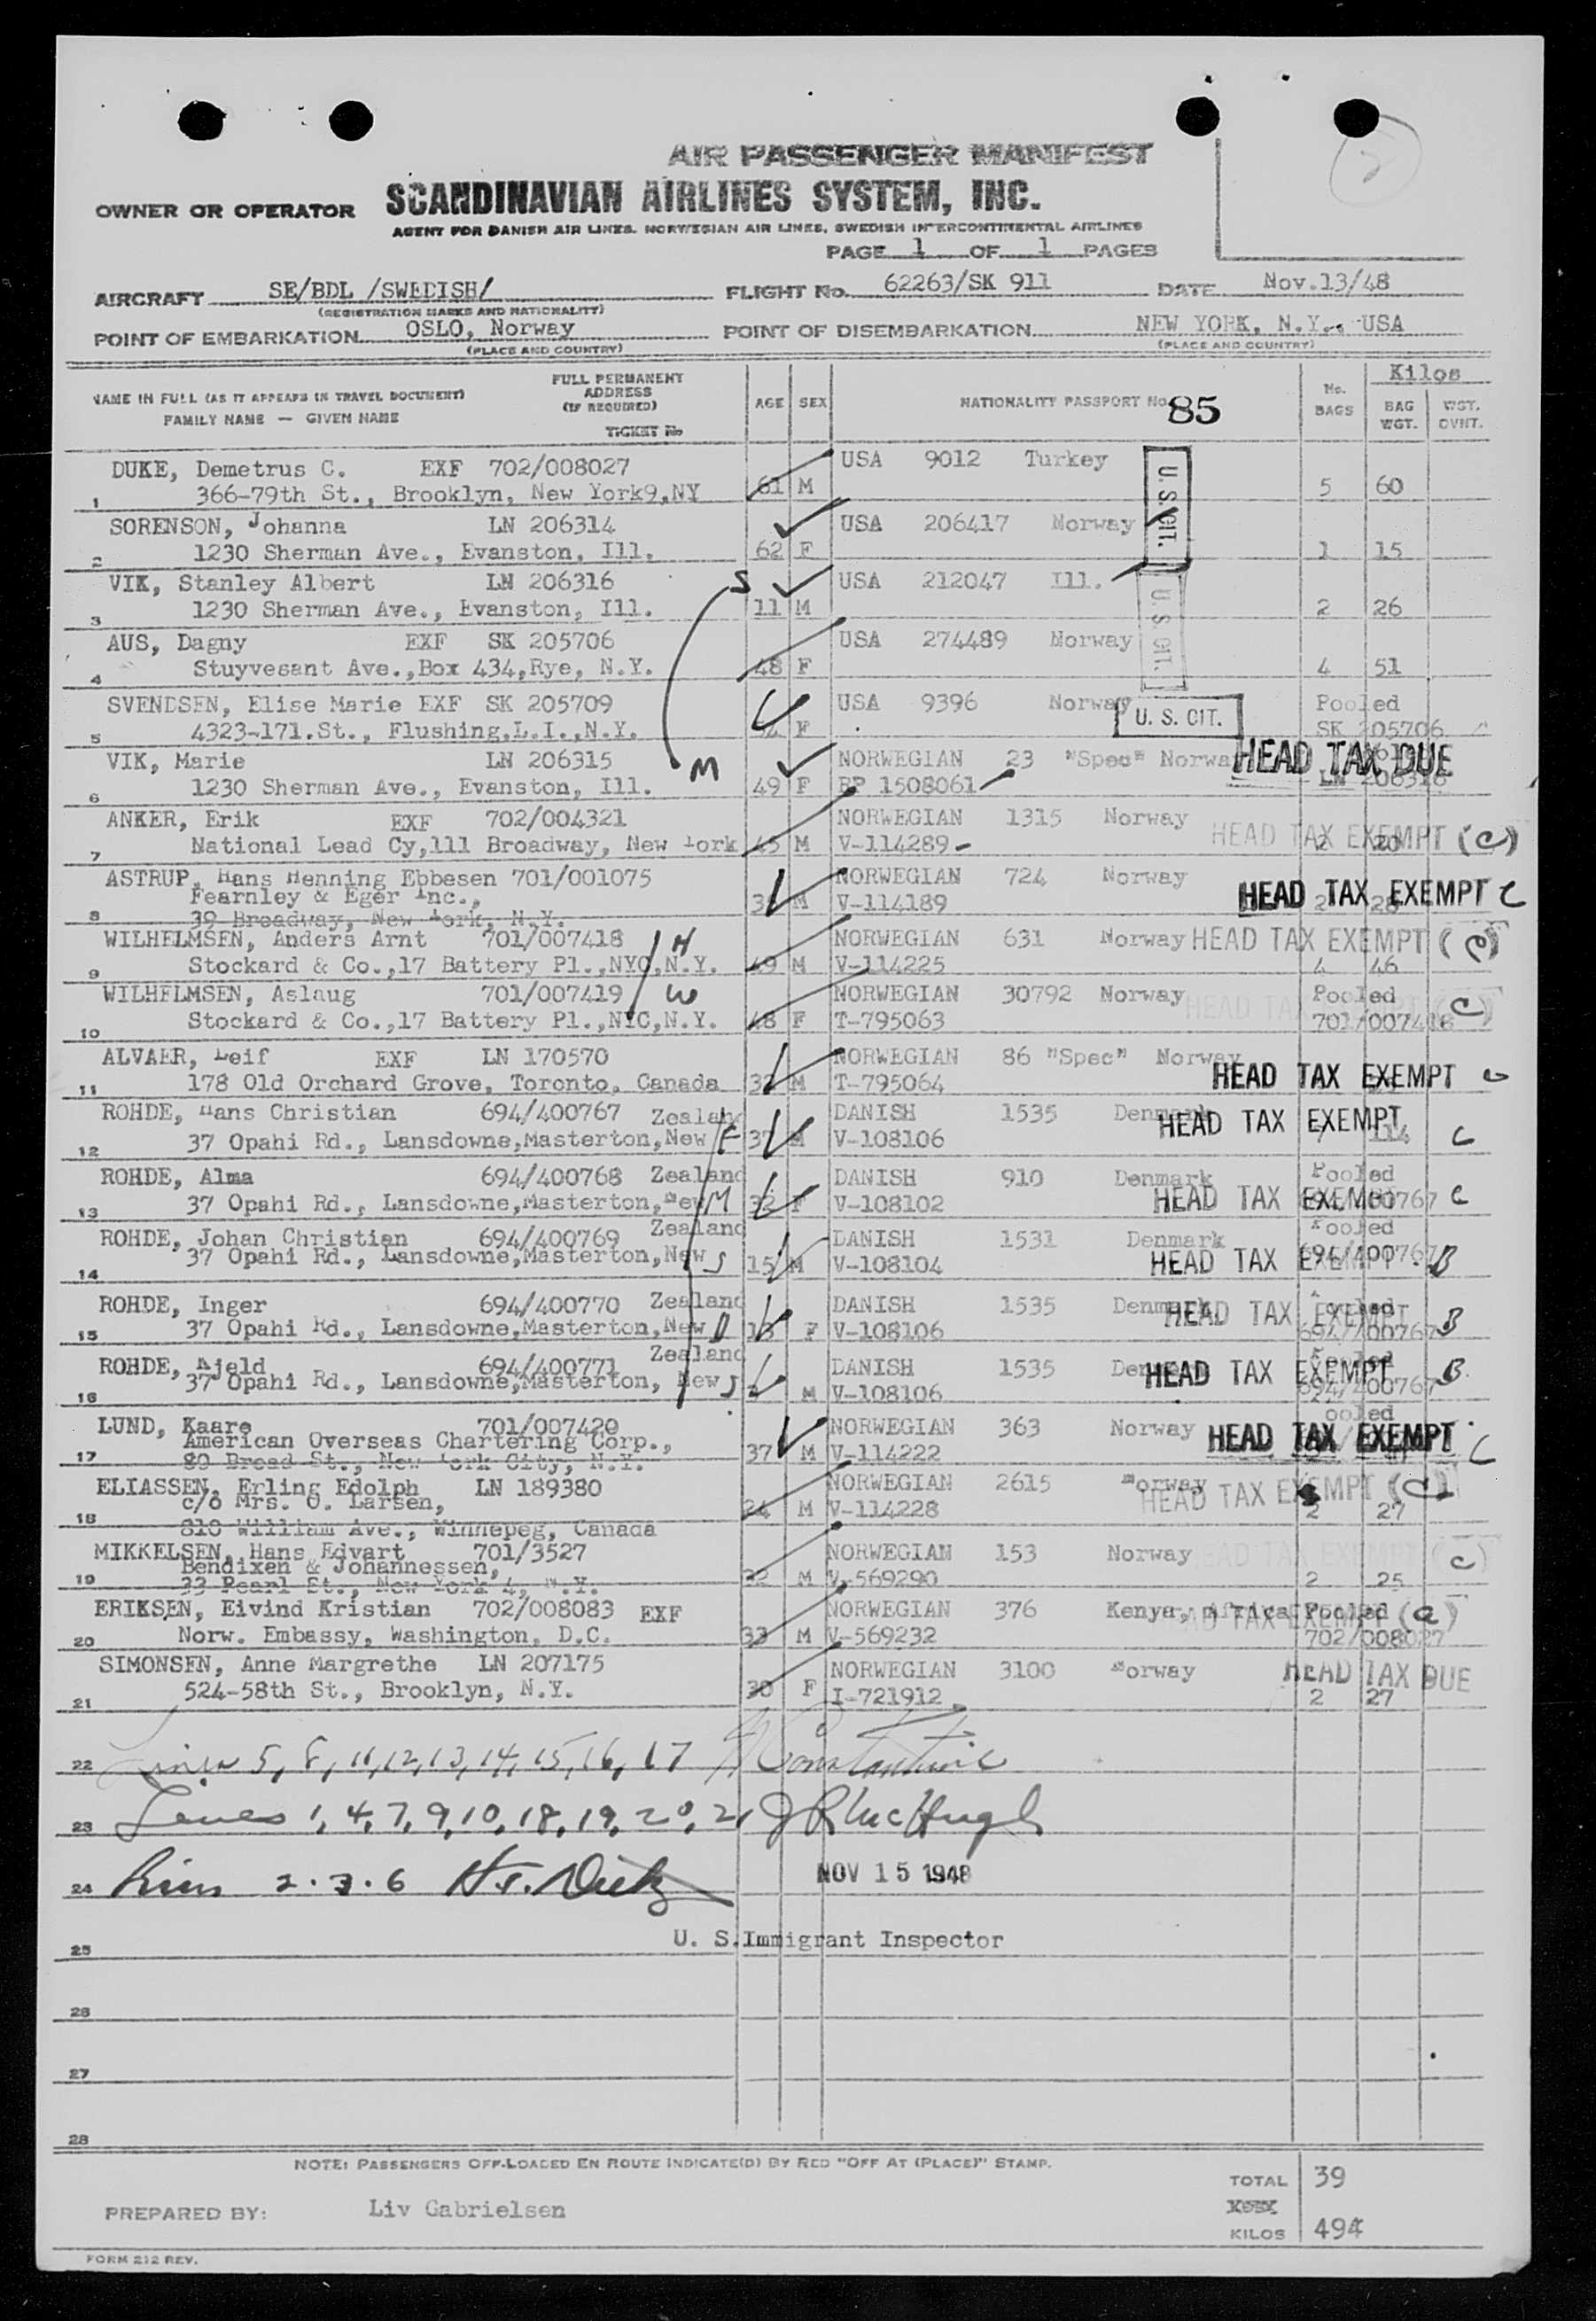 AIR PASSENGER MANIFEST
2
OWNER OR OPERATOR SCANDINAVIAN AIRLINES SYSTEM, INC.
AGENT FOR DANISH AIR LINES, NORWEGIAN AIR LINES, SWEDISH INTERCONTINENTAL AIRLINES
PAGE 1 OF 1 PAGES
AIRCRAFT SE/BDL /SWEDISH/ FLIGHT No. 62263/SK 911 DATE Nov.13/48
(REGISTRATION MARKS AND NATIONALITY)
POINT OF EMBARKATION OSLO, Norway POINT OF DISEMBARKATION NEW YORK, N.Y., USA
(PLACE AND COUNTRY) (PLACE AND COUNTRY)
NAME IN FULL (AS IT APPEARS IN TRAVEL DOCUMENT) FULL PERMANENT ADDRESS (IF REQUIRED) AGE SEX NATIONALITY PASSPORT No. 85 No. BAGS Kilos
FAMILY NAME — GIVEN NAME TICKET No BAG WGT. WGT. OVWT.
DUKE, Demetrus C. EXF 702/008027 USA 9012 Turkey U. S. CIT.
1 366-79th St., Brooklyn, New York9,NY 61 M 5 60
SORENSON, Johanna LN 206314 USA 206417 Norway
2 1230 Sherman Ave., Evanston, Ill. 62 F 1 15
VIK, Stanley Albert LN 206316 S USA 212047 Ill.
3 1230 Sherman Ave., Evanston, Ill. 11 M U. S. CIT. 2 26
AUS, Dagny EXF SK 205706 USA 274489 Norway
4 Stuyvesant Ave.,Box 434,Rye, N.Y. 48 F 4 51
SVENDSEN, Elise Marie EXF SK 205709 USA 9396 Norway U. S. CIT. Pooled
5 4323-171.St., Flushing,L.I.,N.Y. F SK 205706
VIK, Marie LN 206315 M NORWEGIAN 23 "Spec" Norwa HEAD TAX DUE
6 1230 Sherman Ave., Evanston, Ill. 49 F RP 1508061 LN 206316
ANKER, Erik EXF 702/004321 NORWEGIAN 1315 Norway HEAD TAX EXEMPT (C)
7 National Lead Cy,111 Broadway, New York 45 M V-114289 2 20
ASTRUP, Hans Henning Ebbesen 701/001075 NORWEGIAN 724 Norway
Fearnley & Eger Inc., M V-114189 HEAD TAX EXEMPT C 2 28
8 39 Broadway, New York, N.Y.
WILHELMSEN, Anders Arnt 701/007418 H NORWEGIAN 631 Norway HEAD TAX EXEMPT (C)
9 Stockard & Co.,17 Battery Pl.,NYC,N.Y. 49 M V-114225 4 46
WILHELMSEN, Aslaug 701/007419 W NORWEGIAN 30792 Norway HEAD TAX Pooled (C)
10 Stockard & Co.,17 Battery Pl.,NYC,N.Y. 48 F T-795063 701/007418
ALVAER, Leif EXF LN 170570 NORWEGIAN 86 "Spec" Norway
11 178 Old Orchard Grove, Toronto, Canada M T-795064 HEAD TAX EXEMPT C
ROHDE, Hans Christian 694/400767 Zealand DANISH 1535 Denmark HEAD TAX EXEMPT
12 37 Opahi Rd., Lansdowne,Masterton,New F 37 M V-108106 7 114 C
ROHDE, Alma 694/400768 Zealand DANISH 910 Denmark Pooled
13 37 Opahi Rd., Lansdowne,Masterton,New M 32 F V-108102 HEAD TAX EXEMPT 694/400767 C
ROHDE, Johan Christian 694/400769 Zealand DANISH 1531 Denmark Pooled
14 37 Opahi Rd., Lansdowne,Masterton,New S 15 M V-108104 HEAD TAX EXEMPT 694/400767 B
ROHDE, Inger 694/400770 Zealand DANISH 1535 Denmark HEAD TAX EXEMPT Pooled
15 37 Opahi Rd., Lansdowne,Masterton,New D 13 F V-108106 694/400767 B
ROHDE, Kjeld 694/400771 Zealand DANISH 1535 Denmark HEAD TAX EXEMPT Pooled
16 37 Opahi Rd., Lansdowne,Masterton, New S M V-108106 694/400767 B
LUND, Kaare 701/007420 NORWEGIAN 363 Norway HEAD TAX EXEMPT C
American Overseas Chartering Corp., 37 M V-114222
17 80 Broad St., New York City, N.Y.
ELIASSEN, Erling Edolph LN 189380 NORWEGIAN 2615 Norway HEAD TAX EXEMPT (C)
c/o Mrs. O. Larsen, 24 M V-114228 2 27
18 810 William Ave., Winnepeg, Canada
MIKKELSEN, Hans Edvart 701/3527 NORWEGIAN 153 Norway HEAD TAX EXEMPT (C)
Bendixen & Johannessen, M V-569290 2 25
19 33 Pearl St., New York 4, N.Y.
ERIKSEN, Eivind Kristian 702/008083 EXF NORWEGIAN 376 Kenya, Africa HEAD TAX EXEMPT Pooled (a)
20 Norw. Embassy, Washington, D.C. 33 M V-569232 702/008027
SIMONSEN, Anne Margrethe LN 207175 NORWEGIAN 3100 Norway HEAD TAX DUE
21 524-58th St., Brooklyn, N.Y. 30 F I-721912 2 27
22 Lines 5, 8, 11, 12, 13, 14, 15, 16, 17 Constantine
23 Lines 1, 4, 7, 9, 10, 18, 19, 20, 21 J R McHugh
24 Lines 2. 3. 6 NOV 15 1948
25 U. S. Immigrant Inspector
26
27
28
NOTE: PASSENGERS OFF-LOADED EN ROUTE INDICATE(D) BY RED "OFF AT (PLACE)" STAMP.
TOTAL 39
PREPARED BY: Liv Gabrielsen
KILOS 494
FORM 212 REV.